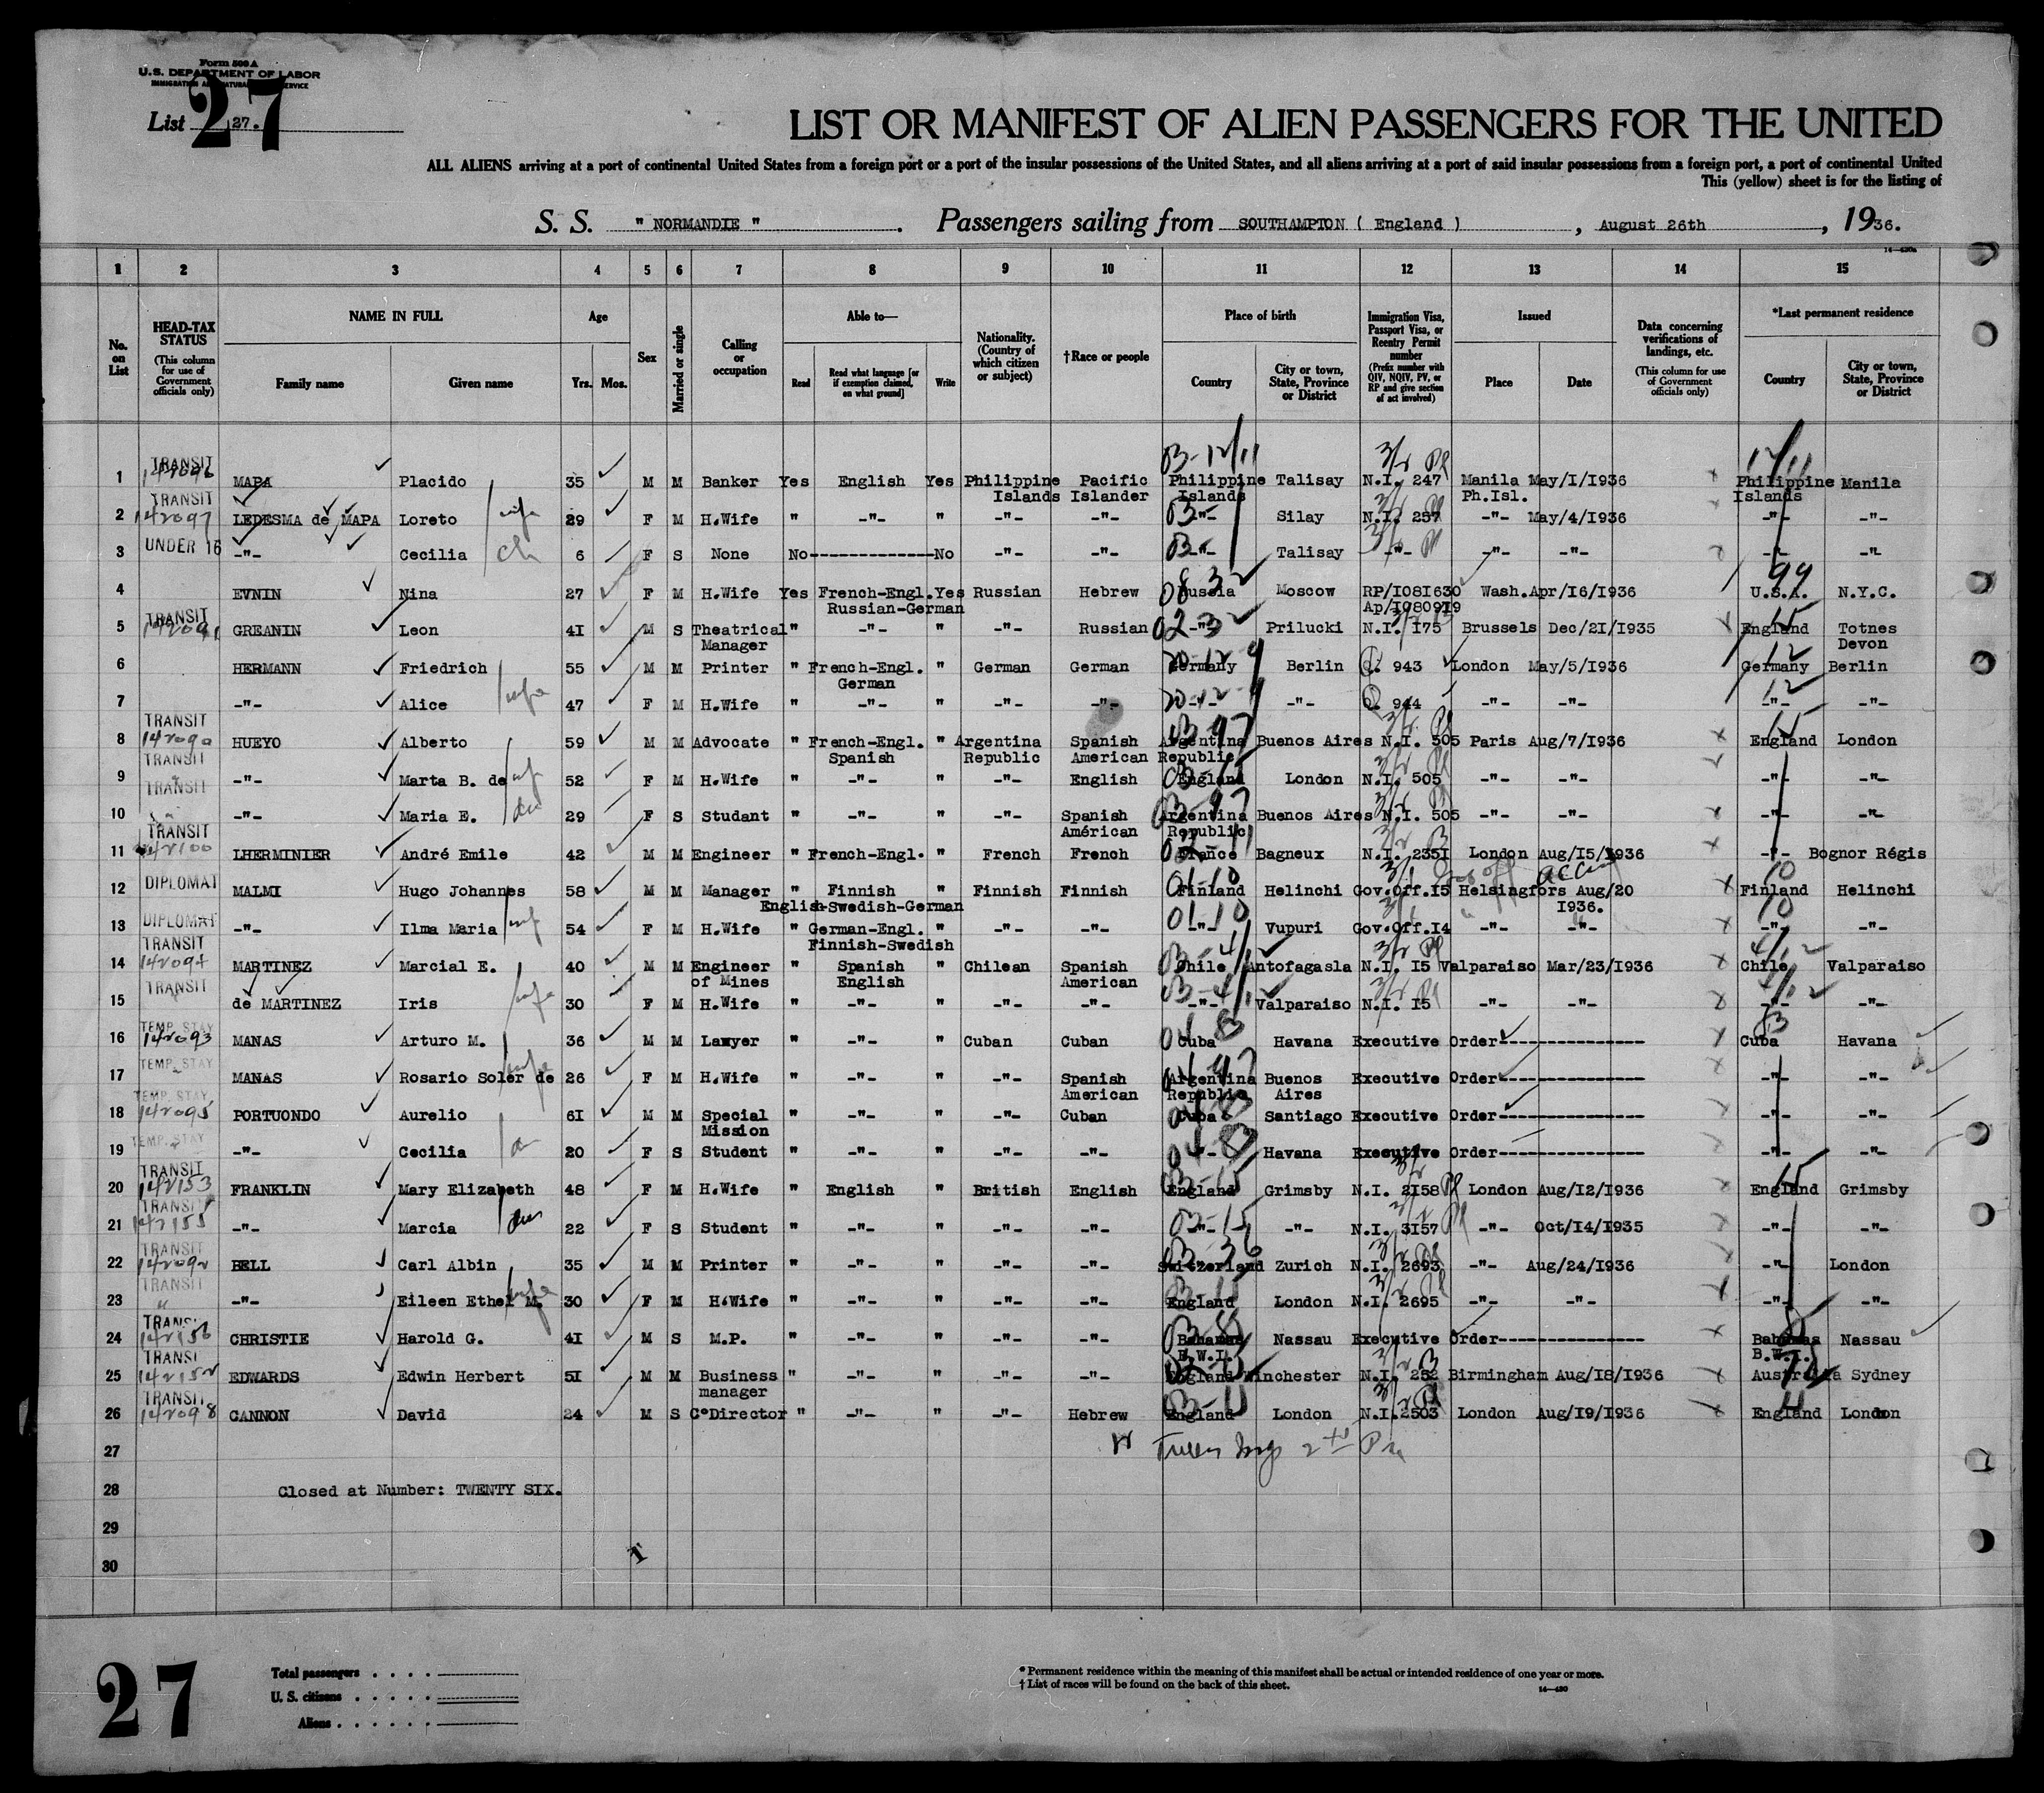 Form 500 A
U.S. DEPARTMENT OF LABOR
IMMIGRATION AND NATURALIZATION SERVICE
List 27.
27
LIST OR MANIFEST OF ALIEN PASSENGERS FOR THE UNITED
ALL ALIENS arriving at a port of continental United States from a foreign port or a port of the insular possessions of the United States, and all aliens arriving at a port of said insular possessions from a foreign port, a port of continental United
This (yellow) sheet is for the listing of
S. S. " NORMANDIE " . Passengers sailing from SOUTHAMPTON ( England ) , August 26th , 1936.
1 2 3 4 5 6 7 8 9 10 11 12 13 14 15
No. on List
HEAD-TAX STATUS (This column for use of Government officials only)
NAME IN FULL Family name Given name
Age Yrs. Mos.
Sex
Married or single
Calling or occupation
Able to— Read Read what language [or if exemption claimed, on what ground] Write
Nationality. (Country of which citizen or subject)
†Race or people
Place of birth Country City or town, State, Province or District
Immigration Visa, Passport Visa, or Reentry Permit number (Prefix number with QIV, NQIV, PV, or RP and give section of act involved)
Issued Place Date
Data concerning verifications of landings, etc. (This column for use of Government officials only)
*Last permanent residence Country City or town, State, Province or District
1 TRANSIT 142096 MAPA Placido 35 M M Banker Yes English Yes Philippine Islands Pacific Islander Philippine Islands Talisay N.I. 247 Manila Ph.Isl. May/1/1936 Philippine Islands Manila
2 TRANSIT 142097 LEDESMA de MAPA Loreto wife 29 F M H.Wife " -"- " -"- -"- -"- Silay N.I. 257 -"- May/4/1936 -"- -"-
3 UNDER 16 -"- Cecilia ch 6 F S None No--------------No -"- -"- -"- Talisay -"- -"- -"- -"- -"-
4 EVNIN Nina 27 F M H.Wife Yes French-Engl. Russian-German Yes Russian Hebrew Russia Moscow RP/1081630 Ap/1080919 Wash. Apr/16/1936 U.S.A. N.Y.C.
5 TRANSIT GREANIN Leon 41 M S Theatrical Manager " -"- " -"- Russian -"- Prilucki N.I. 175 Brussels Dec/21/1935 England Totnes Devon
6 HERMANN Friedrich 55 M M Printer " French-Engl. German " German German Germany Berlin Q. 943 London May/5/1936 Germany Berlin
7 -"- Alice wife 47 F M H.Wife " -"- " -"- -"- -"- Q. 944 -"- -"- -"- -"-
8 TRANSIT HUEYO Alberto 59 M M Advocate " French-Engl. Spanish " Argentina Republic Spanish American Argentina Republic Buenos Aires N.I. 505 Paris Aug/7/1936 England London
9 TRANSIT -"- Marta B. de 52 F M H.Wife " -"- " -"- English England London N.I. 505 -"- -"- -"- -"-
10 TRANSIT -"- Maria E. 29 F S Studant " -"- " -"- Spanish Américan Argentina Republic Buenos Aires N.I. 505 -"- -"- -"- -"-
11 TRANSIT 142100 LHERMINIER André Emile 42 M M Engineer " French-Engl. " French French France Bagneux N.I. 2351 London Aug/15/1936 -"- Bognor Régis
12 DIPLOMAT MALMI Hugo Johannes 58 M M Manager " Finnish English-Swedish-German " Finnish Finnish Finland Helinchi Gov.Off.15 Helsingfors Aug/20 1936. Finland Helinchi
13 DIPLOMAT -"- Ilma Maria 54 F M H.Wife " German-Engl. Finnish-Swedish " -"- -"- -"- Vupuri Gov.Off.14 -"- -"- -"- -"-
14 TRANSIT MARTINEZ Marcial E. 40 M M Engineer of Mines " Spanish English " Chilean Spanish American Chile Antofagasla N.I. 15 Valparaiso Mar/23/1936 Chile Valparaiso
15 TRANSIT de MARTINEZ Iris wife 30 F M H.Wife " -"- " -"- -"- -"- Valparaiso N.I. 15 -"- -"- -"- -"-
16 TEMP. STAY 142093 MANAS Arturo M. 36 M M Lawyer " -"- " Cuban Cuban Cuba Havana Executive Order---------------- Cuba Havana
17 TEMP. STAY MANAS Rosario Soler de 26 F M H.Wife " -"- " -"- Spanish American Argentina Republic Buenos Aires Executive Order---------------- -"- -"-
18 TEMP. STAY 142095 PORTUONDO Aurelio 61 M M Special Mission " -"- " -"- Cuban Cuba Santiago Executive Order---------------- -"- -"-
19 TEMP. STAY -"- Cecilia 20 F S Student " -"- " -"- -"- -"- Havana Executive Order---------------- -"- -"-
20 TRANSIT 142153 FRANKLIN Mary Elizabeth 48 F M H.Wife " English " British English England Grimsby N.I. 2158 London Aug/12/1936 England Grimsby
21 TRANSIT 142155 -"- Marcia 22 F S Student " -"- " -"- -"- -"- -"- N.I. 3157 -"- Oct/14/1935 -"- -"-
22 TRANSIT 142092 BELL Carl Albin 35 M M Printer " -"- " -"- -"- Switzerland Zurich N.I. 2693 -"- Aug/24/1936 -"- London
23 TRANSIT " -"- Eileen Ethel M. wife 30 F M H.Wife " -"- " -"- -"- England London N.I. 2695 -"- -"- -"- -"-
24 TRANSI 142156 CHRISTIE Harold G. 41 M S M.P. " -"- " -"- -"- Bahamas B.W.I. Nassau Executive Order---------------- Bahamas B.W.I. Nassau
25 TRANSI 142152 EDWARDS Edwin Herbert 51 M M Business manager " -"- " -"- -"- England Winchester N.I. 252 Birmingham Aug/18/1936 Australia Sydney
26 TRANSIT 142098 CANNON David 24 M S C°Director " -"- " -"- Hebrew England London N.I. 2503 London Aug/19/1936 England London
27
28 Closed at Number: TWENTY SIX.
29
30
27
Total passengers . . . .
U. S. citizens . . . . .
Aliens . . . . . .
* Permanent residence within the meaning of this manifest shall be actual or intended residence of one year or more.
† List of races will be found on the back of this sheet.
14—430